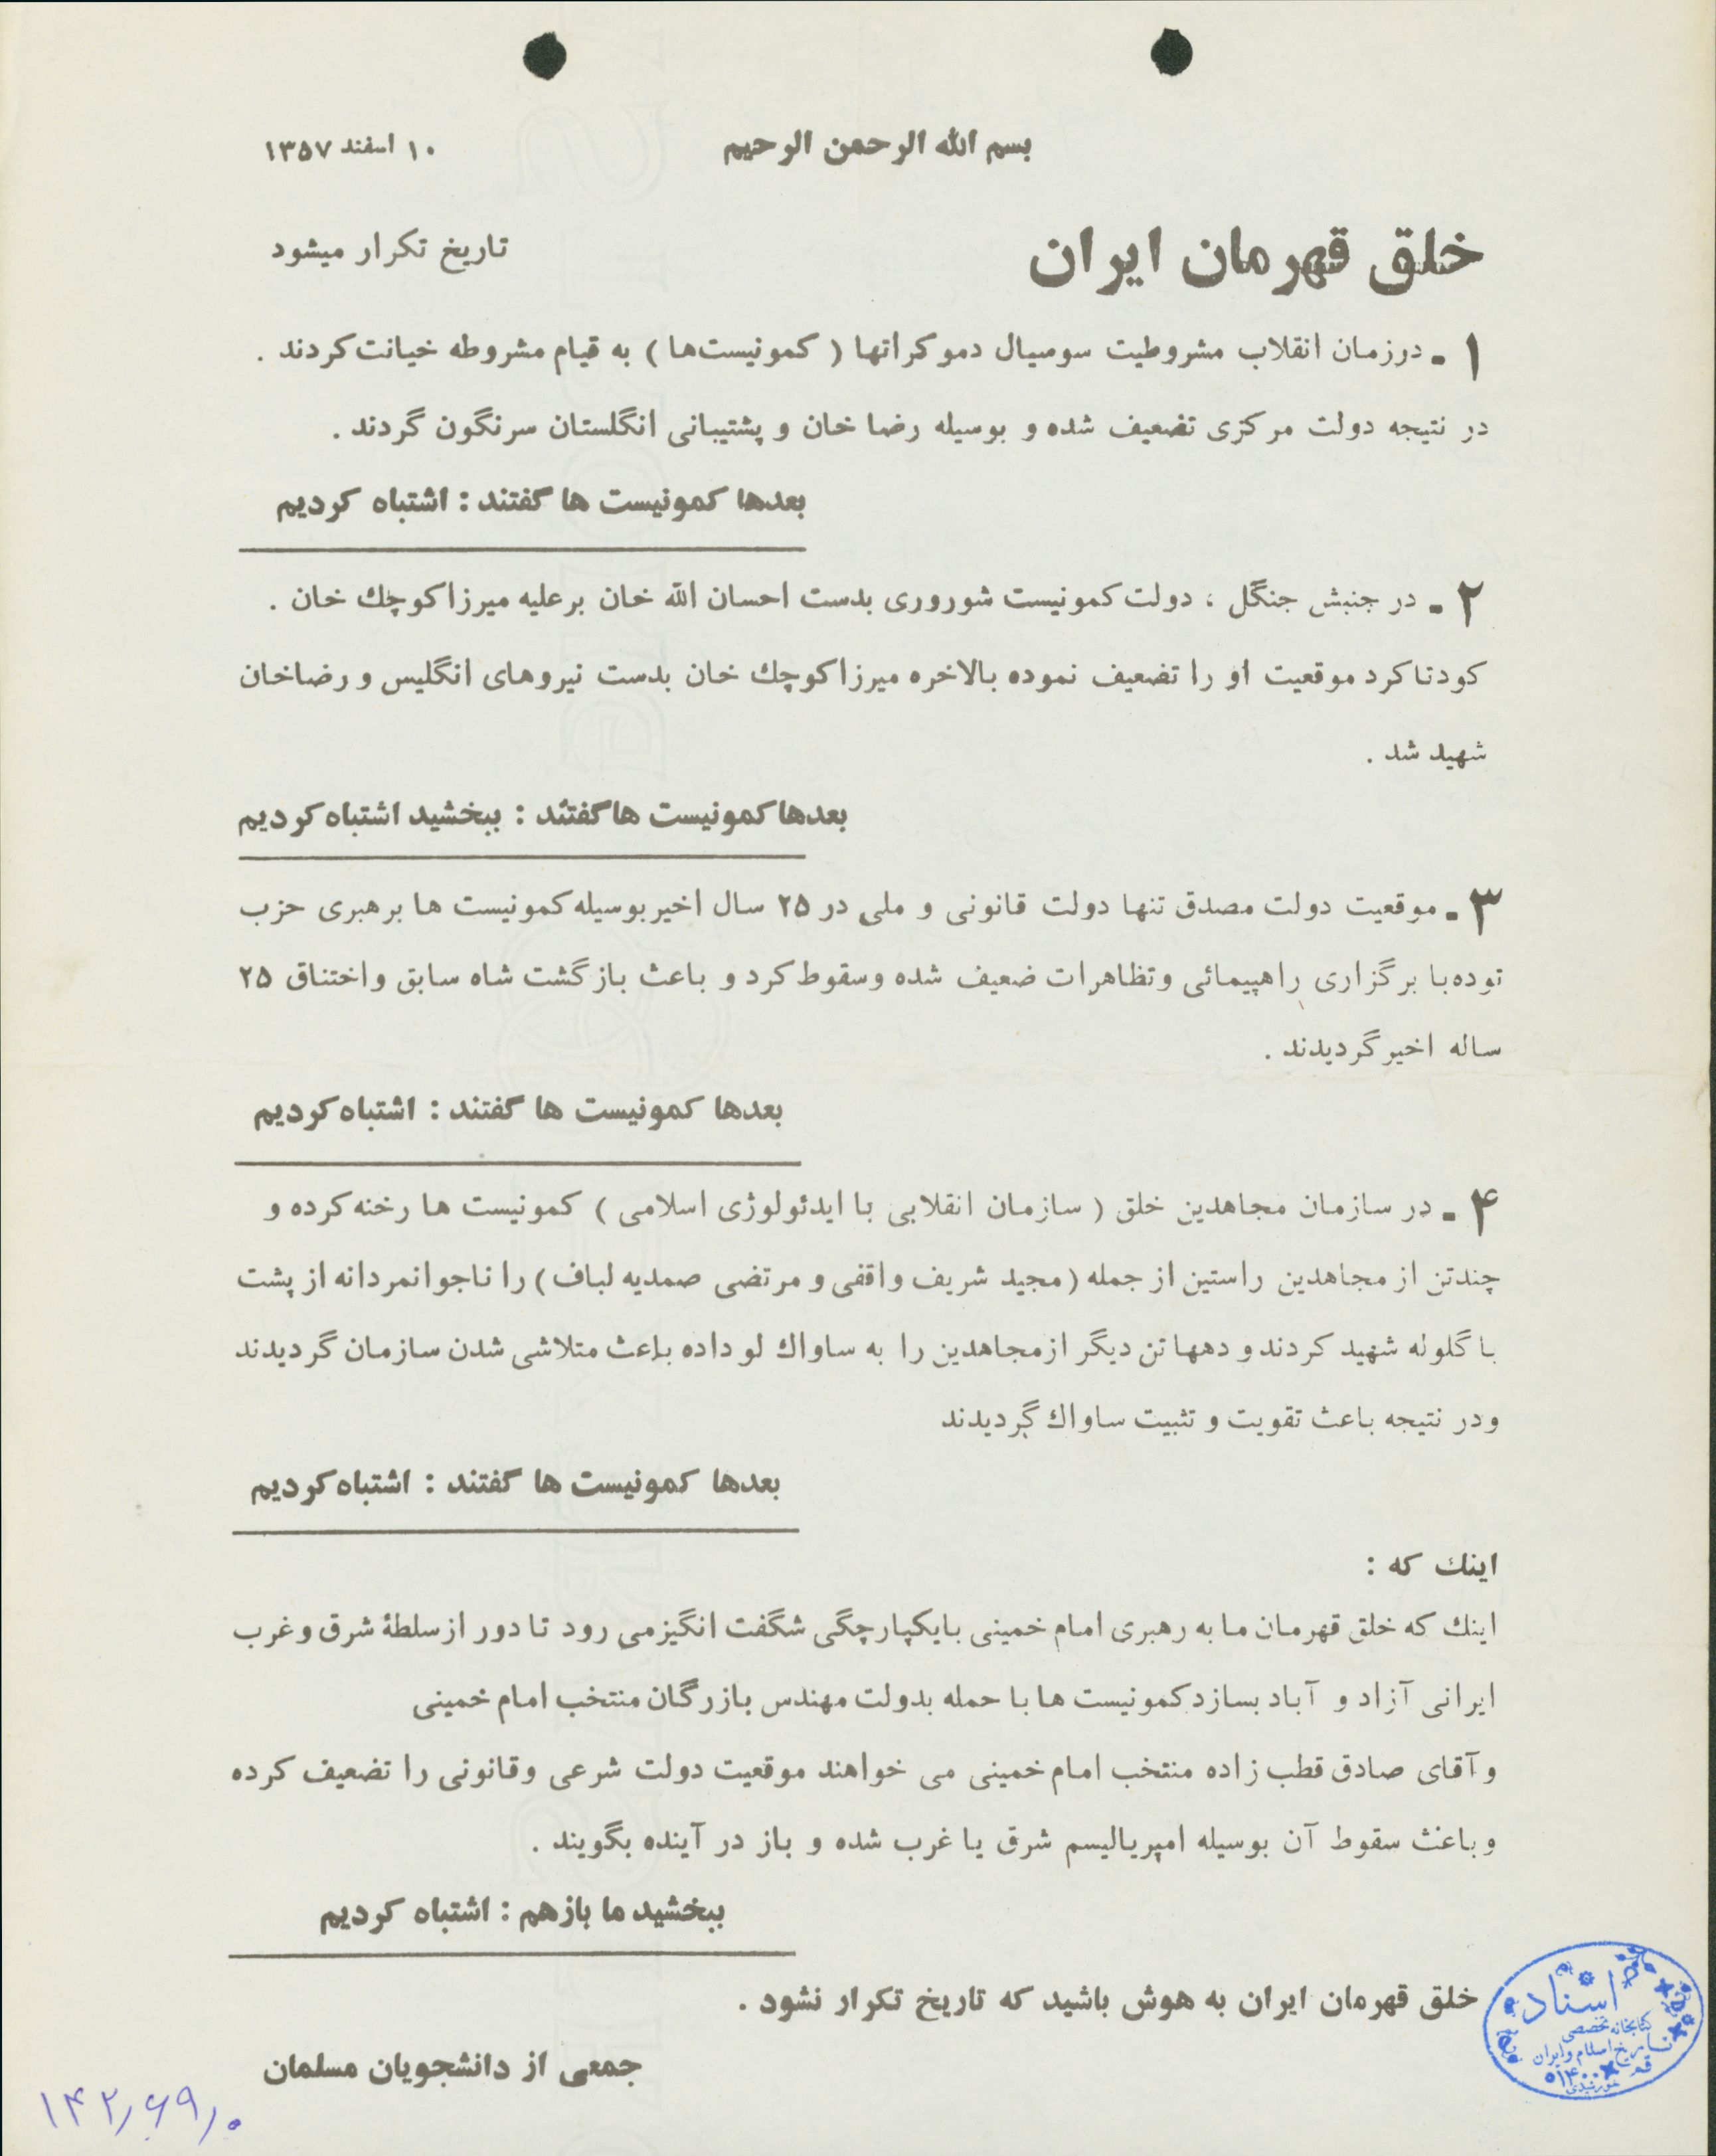 بسم الله الرحمن الرحیم
۱۰ اسفند ۱۳۵۷
خلق قهرمان ایران
تاریخ تکرار میشود
۱ - درزمان انقلاب مشروطیت سوسیال دموکراتها ( کمونیست‌ها ) به قیام مشروطه خیانت کردند .
در نتیجه دولت مرکزی تضعیف شده و بوسیله رضا خان و پشتیبانی انگلستان سرنگون گردند .
بعدها کمونیست ها گفتند : اشتباه کردیم
۲ - در جنبش جنگل ، دولت کمونیست شوروری بدست احسان الله خان برعلیه میرزا کوچك خان .
کودتا کرد موقعیت او را تضعیف نموده بالاخره میرزا کوچك خان بدست نیروهای انگلیس و رضاخان
شهید شد .
بعدها کمونیست ها گفتند : ببخشید اشتباه کردیم
۳ - موقعیت دولت مصدق تنها دولت قانونی و ملی در ۲۵ سال اخیر بوسیله کمونیست ها برهبری حزب
توده با برگزاری راهپیمائی وتظاهرات ضعیف شده وسقوط کرد و باعث بازگشت شاه سابق واختناق ۲۵
ساله اخیر گردیدند .
بعدها کمونیست ها گفتند : اشتباه کردیم
۴ - در سازمان مجاهدین خلق ( سازمان انقلابی با ایدئولوژی اسلامی ) کمونیست ها رخنه کرده و
چندتن از مجاهدین راستین از جمله (مجید شریف واقفی و مرتضی صمدیه لباف) را ناجوانمردانه از پشت
با گلوله شهید کردند و دهها تن دیگر ازمجاهدین را به ساواك لو داده باعث متلاشی شدن سازمان گردیدند
ودر نتیجه باعث تقویت و تثبیت ساواك گردیدند
بعدها کمونیست ها گفتند : اشتباه کردیم
اینك که :
اینك که خلق قهرمان ما به رهبری امام خمینی بایکپارچگی شگفت انگیزمی رود تا دور از سلطۀ شرق وغرب
ایرانی آزاد و آباد بسازد کمونیست ها با حمله بدولت مهندس بازرگان منتخب امام خمینی
وآقای صادق قطب زاده منتخب امام خمینی می خواهند موقعیت دولت شرعی وقانونی را تضعیف کرده
وباعث سقوط آن بوسیله امپریالیسم شرق یا غرب شده و باز در آینده بگویند .
ببخشید ما بازهم : اشتباه کردیم
خلق قهرمان ایران به هوش باشید که تاریخ تکرار نشود .
جمعی از دانشجویان مسلمان
اسناد
کتابخانه تخصصی
تاریخ اسلام وایران
قم